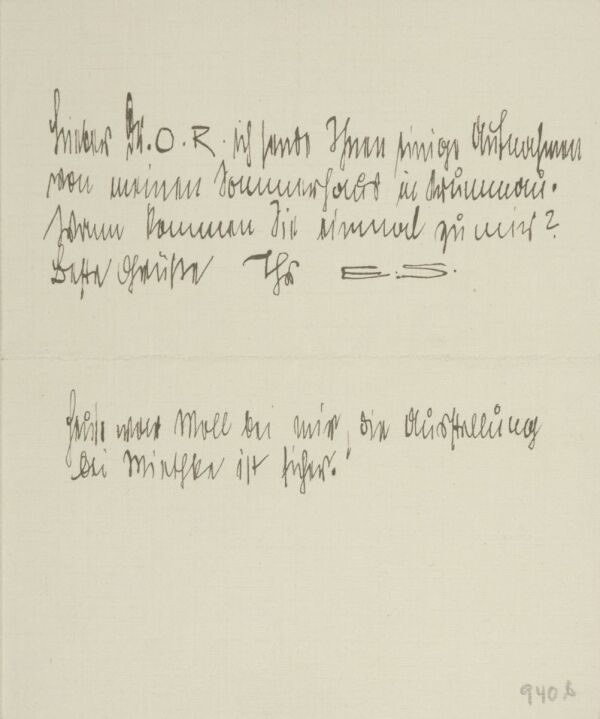 Lieber Dr. O. R. ich sende Ihnen einige Aufnahmen
von meinen Sommerhaus in Krummau.
Wann kommen Sie einmal zu mir?
Beste Grüße Ihr E. S.
heute war Moll bei mir, die Ausstellung
bei Miethke ist sicher.
940 b